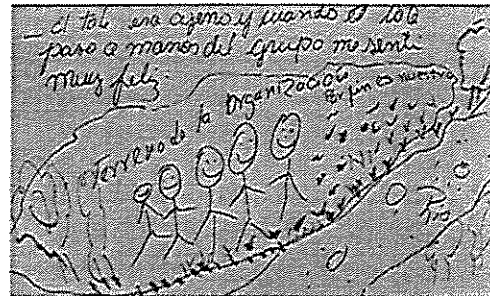 - el lote era ajeno y cuando el lote
paso a manos del grupo me senti
muy feliz
Terreno de la Organización
Por fin es nuestro
Rio